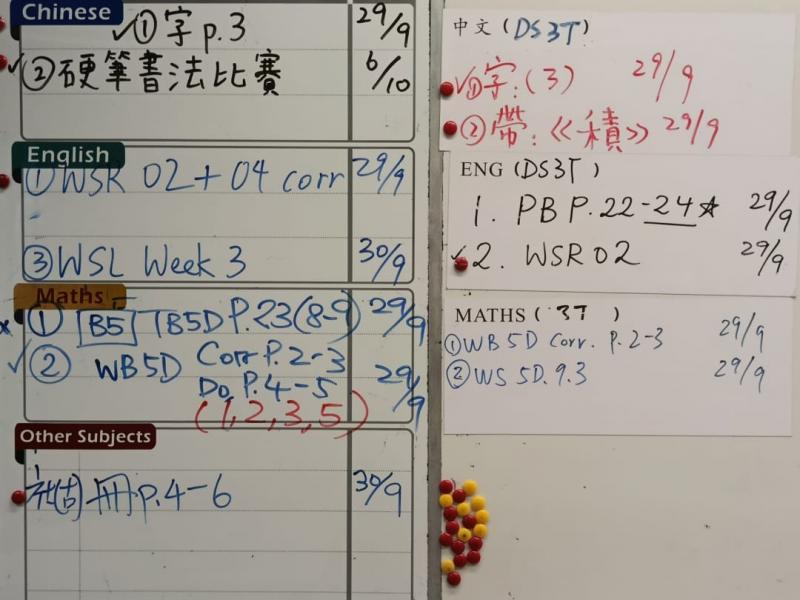 Chinese
✓① 字 p.3 29/9
✓② 硬筆書法比賽 6/10
English
① WSR 02 + 04 corr 29/9
③ WSL Week 3 30/9
Maths
① B5 TB5D P.23(8-9) 29/9
✓② WB 5D Corr P.2-3
Do P.4-5 29/9
(1,2,3,5)
Other Subjects
冊p.4-6 30/9
中文 (DS3T)
✓① 字:(3) 29/9
② 帶:《積》 29/9
ENG (DS3T)
1. PB P.22-24☆ 29/9
✓2. WSR 02 29/9
MATHS (3T)
① WB 5D Corr. P.2-3 29/9
② WS 5D.9.3 29/9